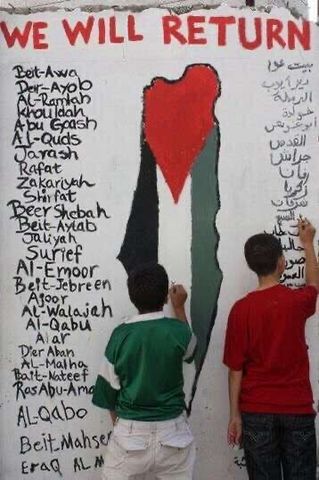 WE WILL RETURN
Beit-Awa
Der-Ayob
Al-Ramlah
Khouldah
Abu Goash
Al-Quds
Jarash
Rafat
Zakariyah
Shirfat
Beer Shebah
Beit-Aytab
Jaliyah
Surief
Al-Emoor
Beit-Jebreen
Ajoor
Al-Walajah
Al-Qabu
Alar
Dier Aban
Al-Malha
Bait-Nateef
Ras Abu-Ama
AL-Qabo
Beit Mahser
EraQ AL M
بيت عوا
دير أيوب
الرملة
خولدة
ابو غوش
القدس
جراش
رفات
زكريا
شرفات
صور